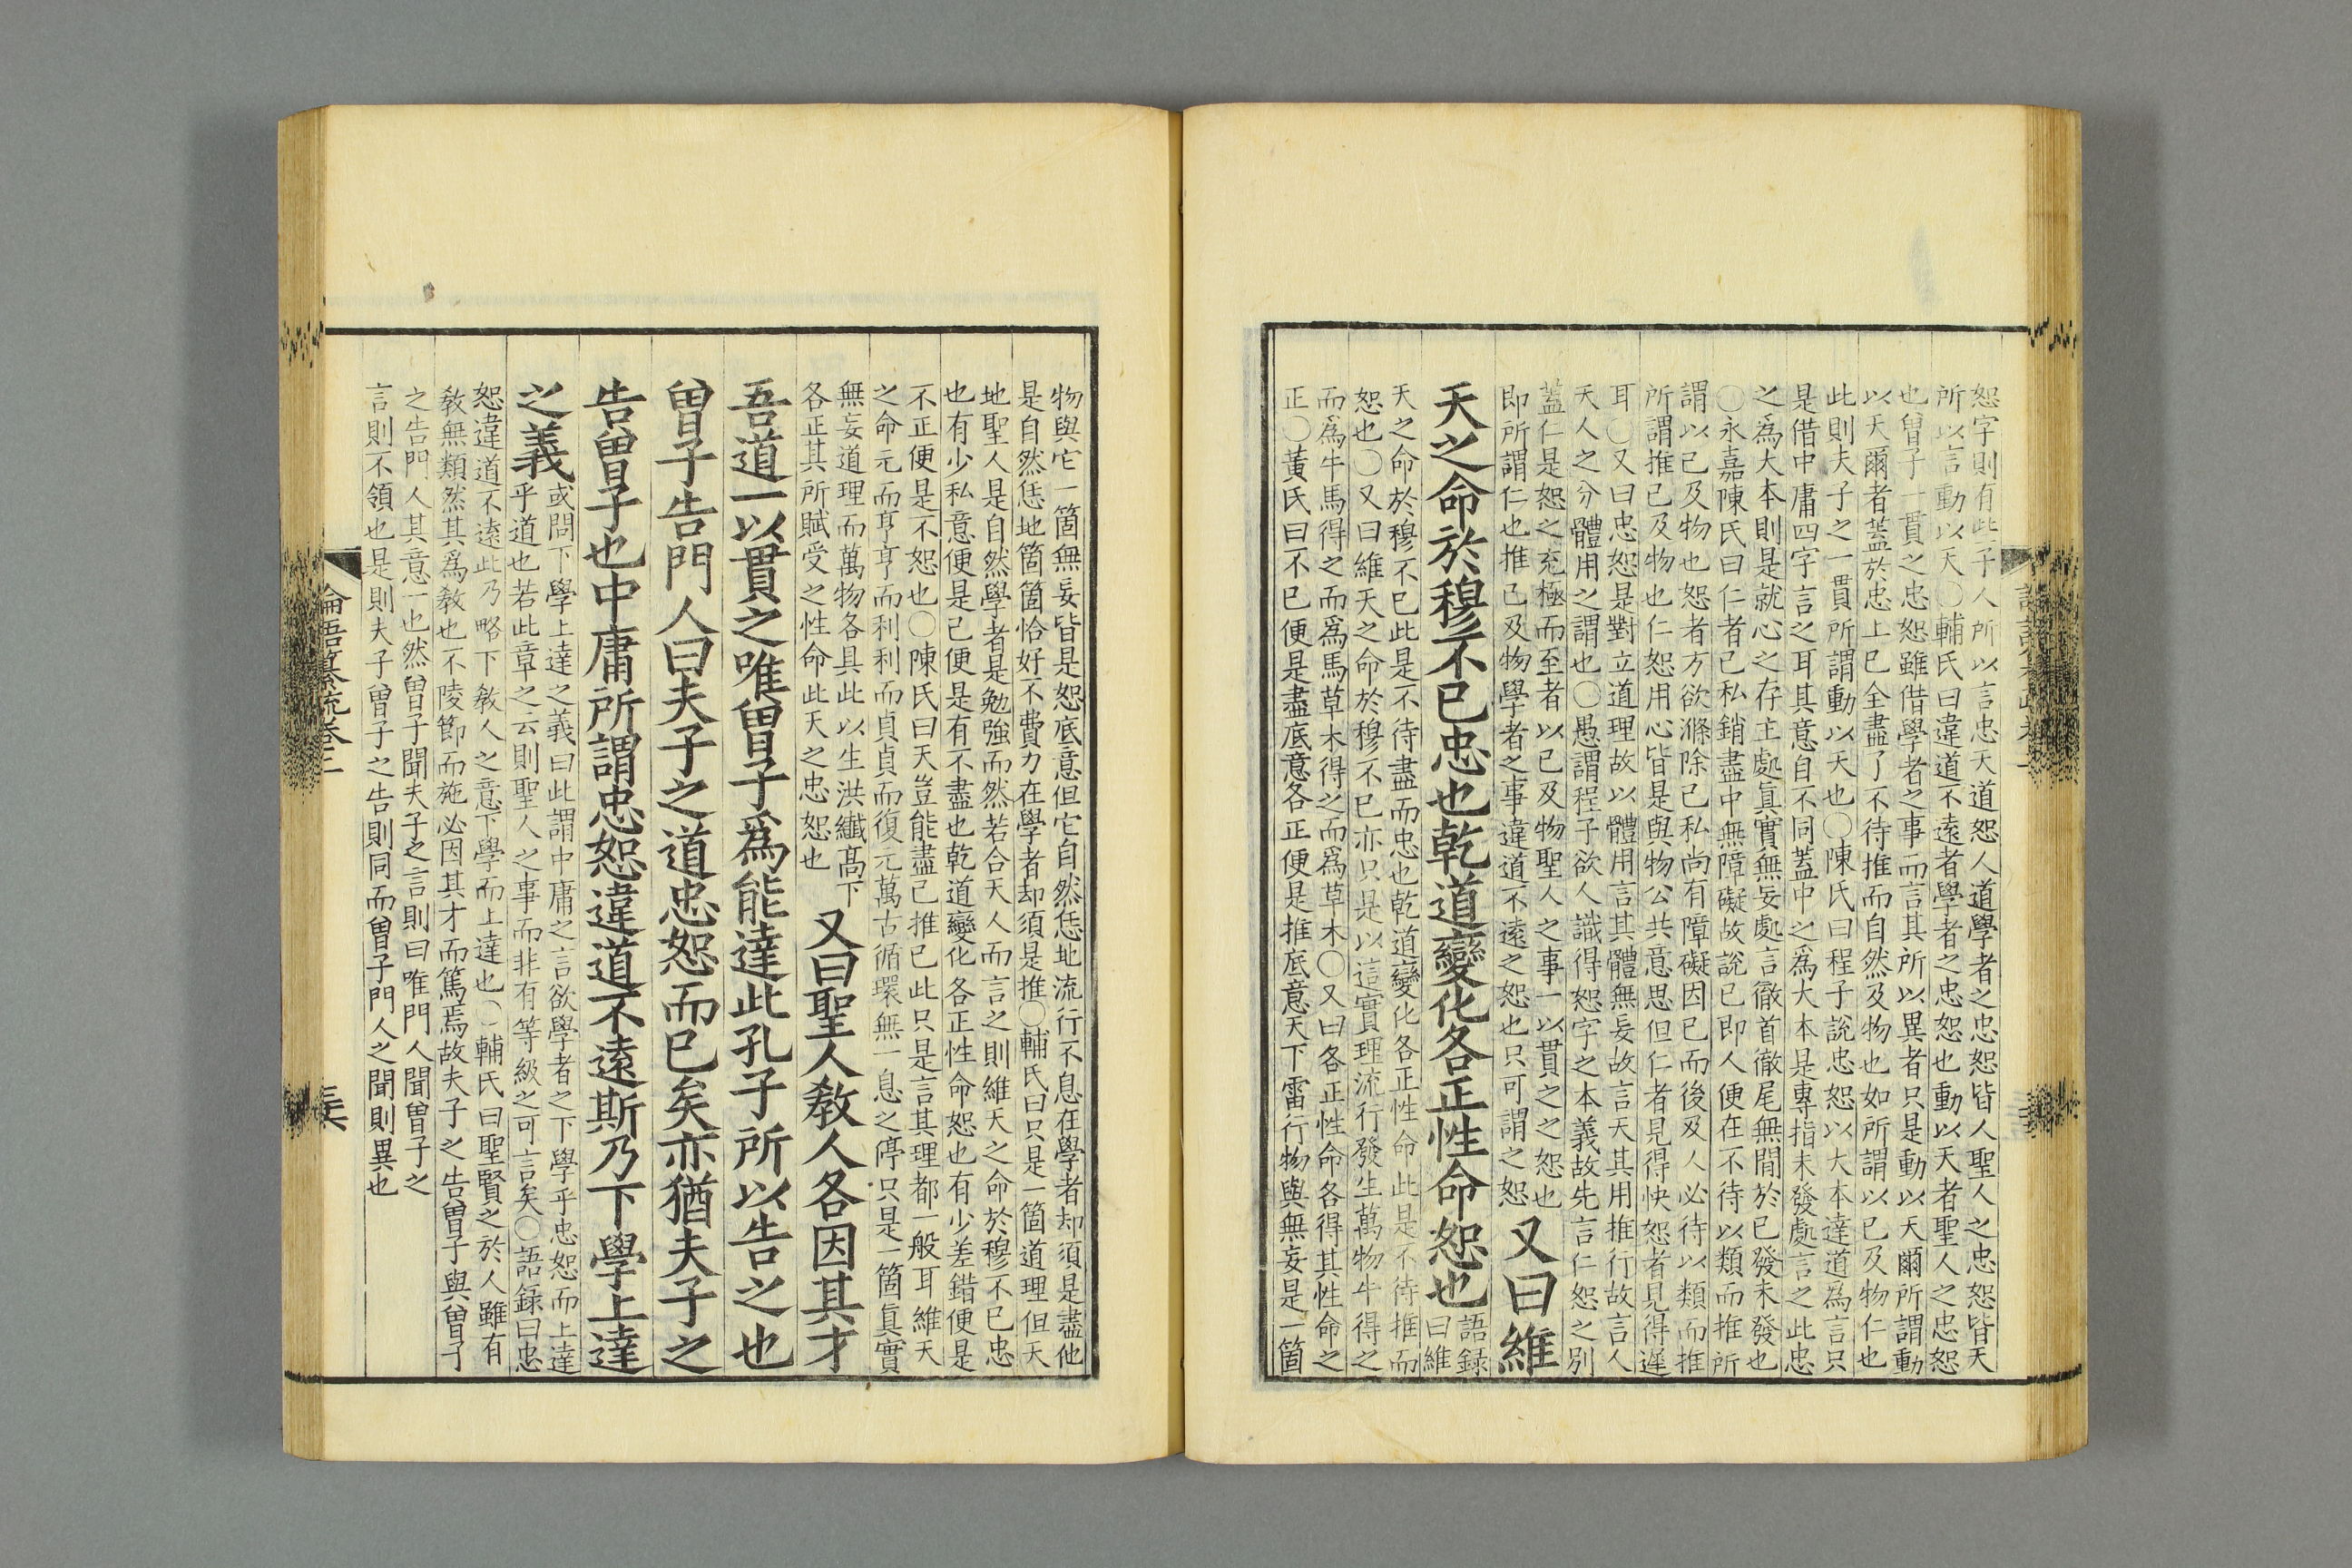 恕字則有些子人所以言忠天道恕人道學者之忠恕皆人聖人之忠恕皆天
所以言動以天〇輔氏曰違道不遠者學者之忠恕也動以天者聖人之忠恕
也曾子一貫之忠恕雖借學者之事而言其所以異者只是動以天爾所謂動
以天爾者蓋於忠上已全盡了不待推而自然及物也如所謂以己及物仁也
此則夫子之一貫所謂動以天也〇陳氏曰程子說忠恕以大本達道爲言只
是借中庸四字言之耳其意自不同蓋中之爲大本是專指未發處言之此忠
之爲大本則是就心之存主處眞實無妄處言徹首徹尾無間於已發未發也
〇永嘉陳氏曰仁者已私銷盡中無障礙故說已即人便在不待以類而推所
謂以己及物也恕者方欲滌除己私尚有障礙因已而後及人必待以類而推
所謂推己及物也仁恕用心皆是與物公共意思但仁者見得快恕者見得遲
耳〇又曰忠恕是對立道理故以體用言其體無妄故言天其用推行故言人
天人之分體用之謂也〇愚謂程子欲人識得恕字之本義故先言仁恕之別
蓋仁是恕之充極而至者以己及物聖人之事一以貫之之恕也
即所謂仁也推己及物學者之事違道不遠之恕也只可謂之恕
又曰維
天之命於穆不已忠也乾道變化各正性命恕也
語録
曰維
天之命於穆不已此是不待盡而忠也乾道變化各正性命此是不待推而
恕也〇又曰維天之命於穆不已亦只是以這實理流行發生萬物牛得之
而爲牛馬得之而爲馬草木得之而爲草木〇又曰各正性命各得其性命之
正〇黃氏曰不已便是盡底意各正便是推底意天下雷行物與無妄是一箇
物與它一箇無妄皆是恕底意但它自然恁地流行不息在學者却須是盡他
是自然恁地箇箇恰好不費力在學者却須是推〇輔氏曰只是一箇道理但天
地聖人是自然學者是勉強而然若合天人而言之則維天之命於穆不已忠
也有少私意便是己便是有不盡也乾道變化各正性命恕也有少差錯便是
不正便是不恕也〇陳氏曰天豈能盡己推己此只是言其理都一般耳維天
之命元而亨亨而利利而貞貞而復元萬古循環無一息之停只是一箇眞實
無妄道理而萬物各具此以生洪纖高下
各正其所賦受之性命此天之忠恕也
又曰聖人教人各因其才
吾道一以貫之唯曾子爲能達此孔子所以告之也
曾子告門人曰夫子之道忠恕而已矣亦猶夫子之
告曾子也中庸所謂忠恕違道不遠斯乃下學上達
之義
或問下學上達之義曰此謂中庸之言欲學者之下學乎忠恕而上達
乎道也若此章之云則聖人之事而非有等級之可言矣〇語録曰忠
恕違道不遠此乃略下教人之意下學而上達也〇輔氏曰聖賢之於人雖有
教無類然其爲教也不陵節而施必因其才而篤焉故夫子之告曾子與曾子
之告門人其意一也然曾子聞夫子之言則曰唯門人聞曾子之
言則不領也是則夫子曾子之告則同而曾子門人之聞則異也
論語纂疏卷二